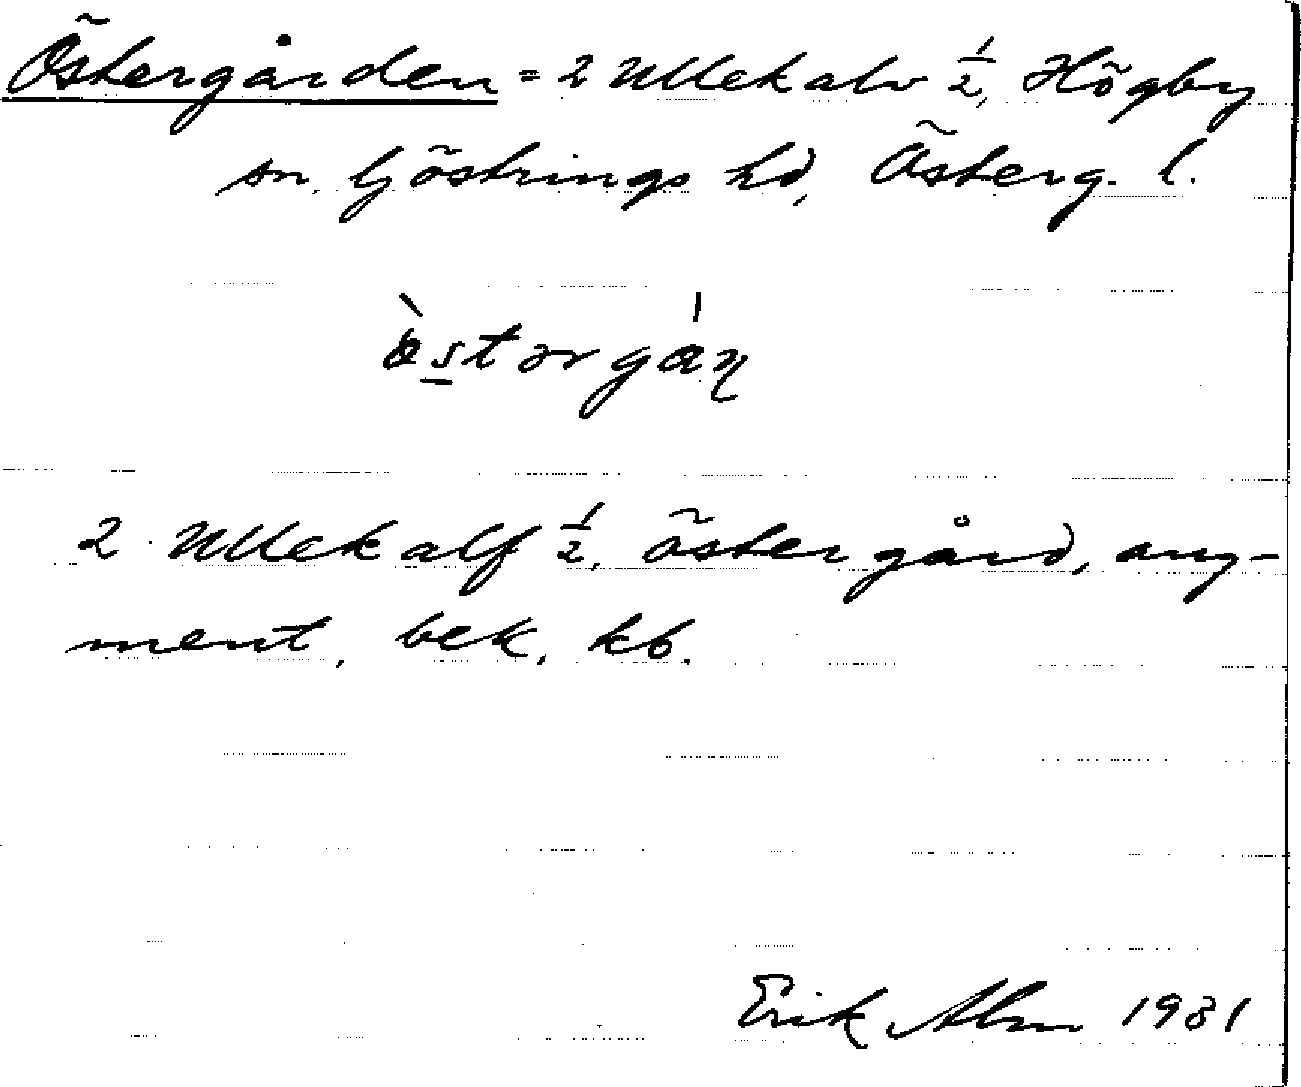 Östergården = 2 Ullekalv 1/2, Högby
sn. Göstrings hd, Österg. l.
òstərgán
2 Ullekalf 1/2, östergård, aug-
ment, bek. kb.
Erik Alm 1931